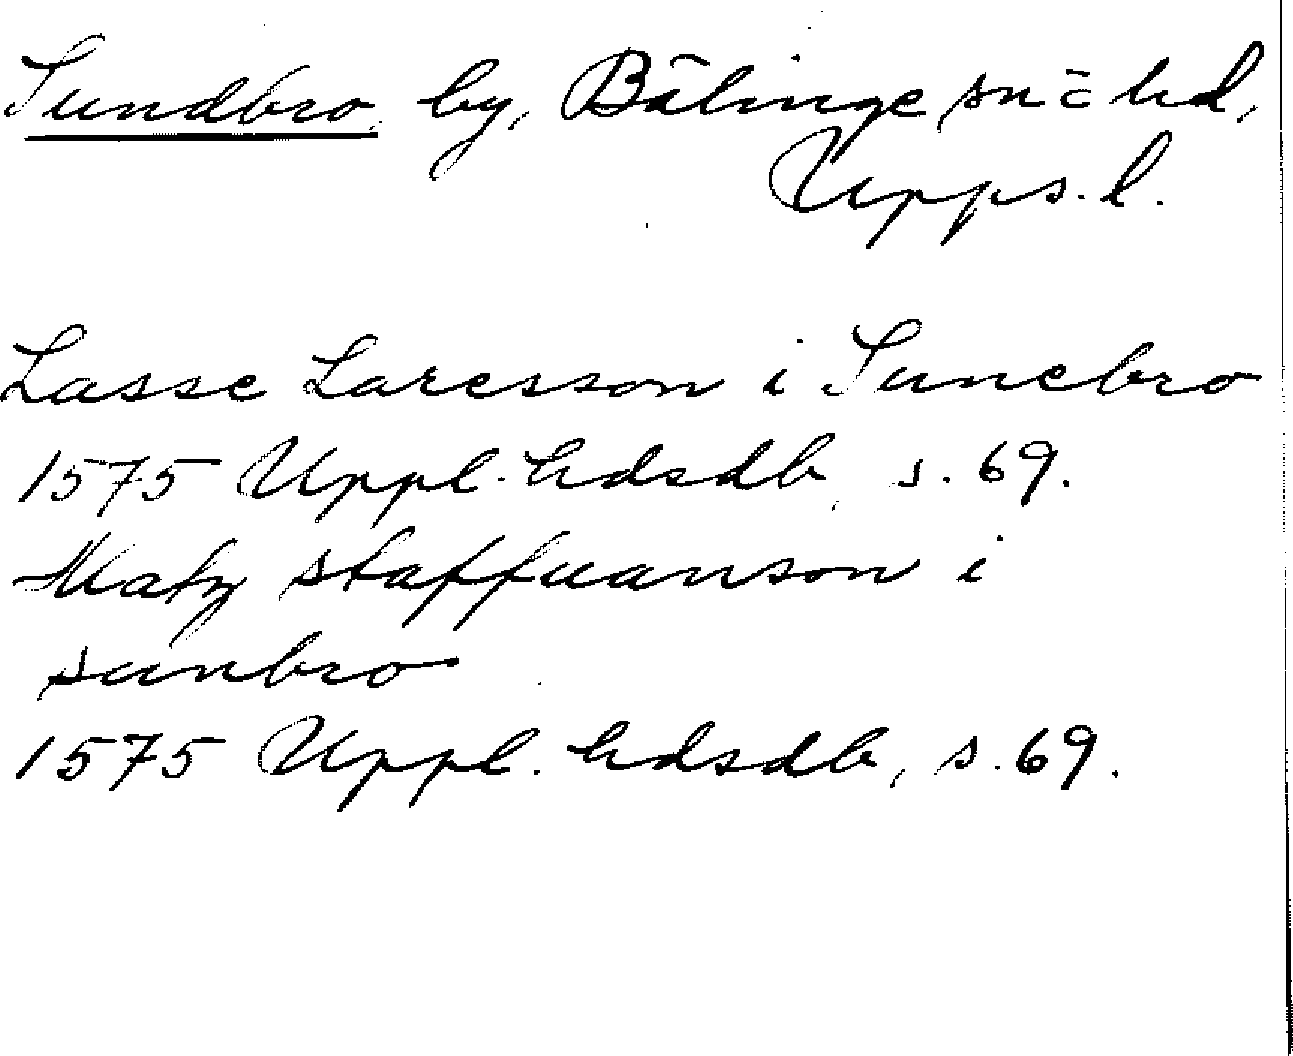 Sundbro by, Bälinge sn o hd,
Upps. l.
Lasse Laresson i Sunebro
1575 Uppl. hdsdb, s. 69.
Matz staffuanson i
sunbro
1575 Uppl. hdsdb, s. 69.